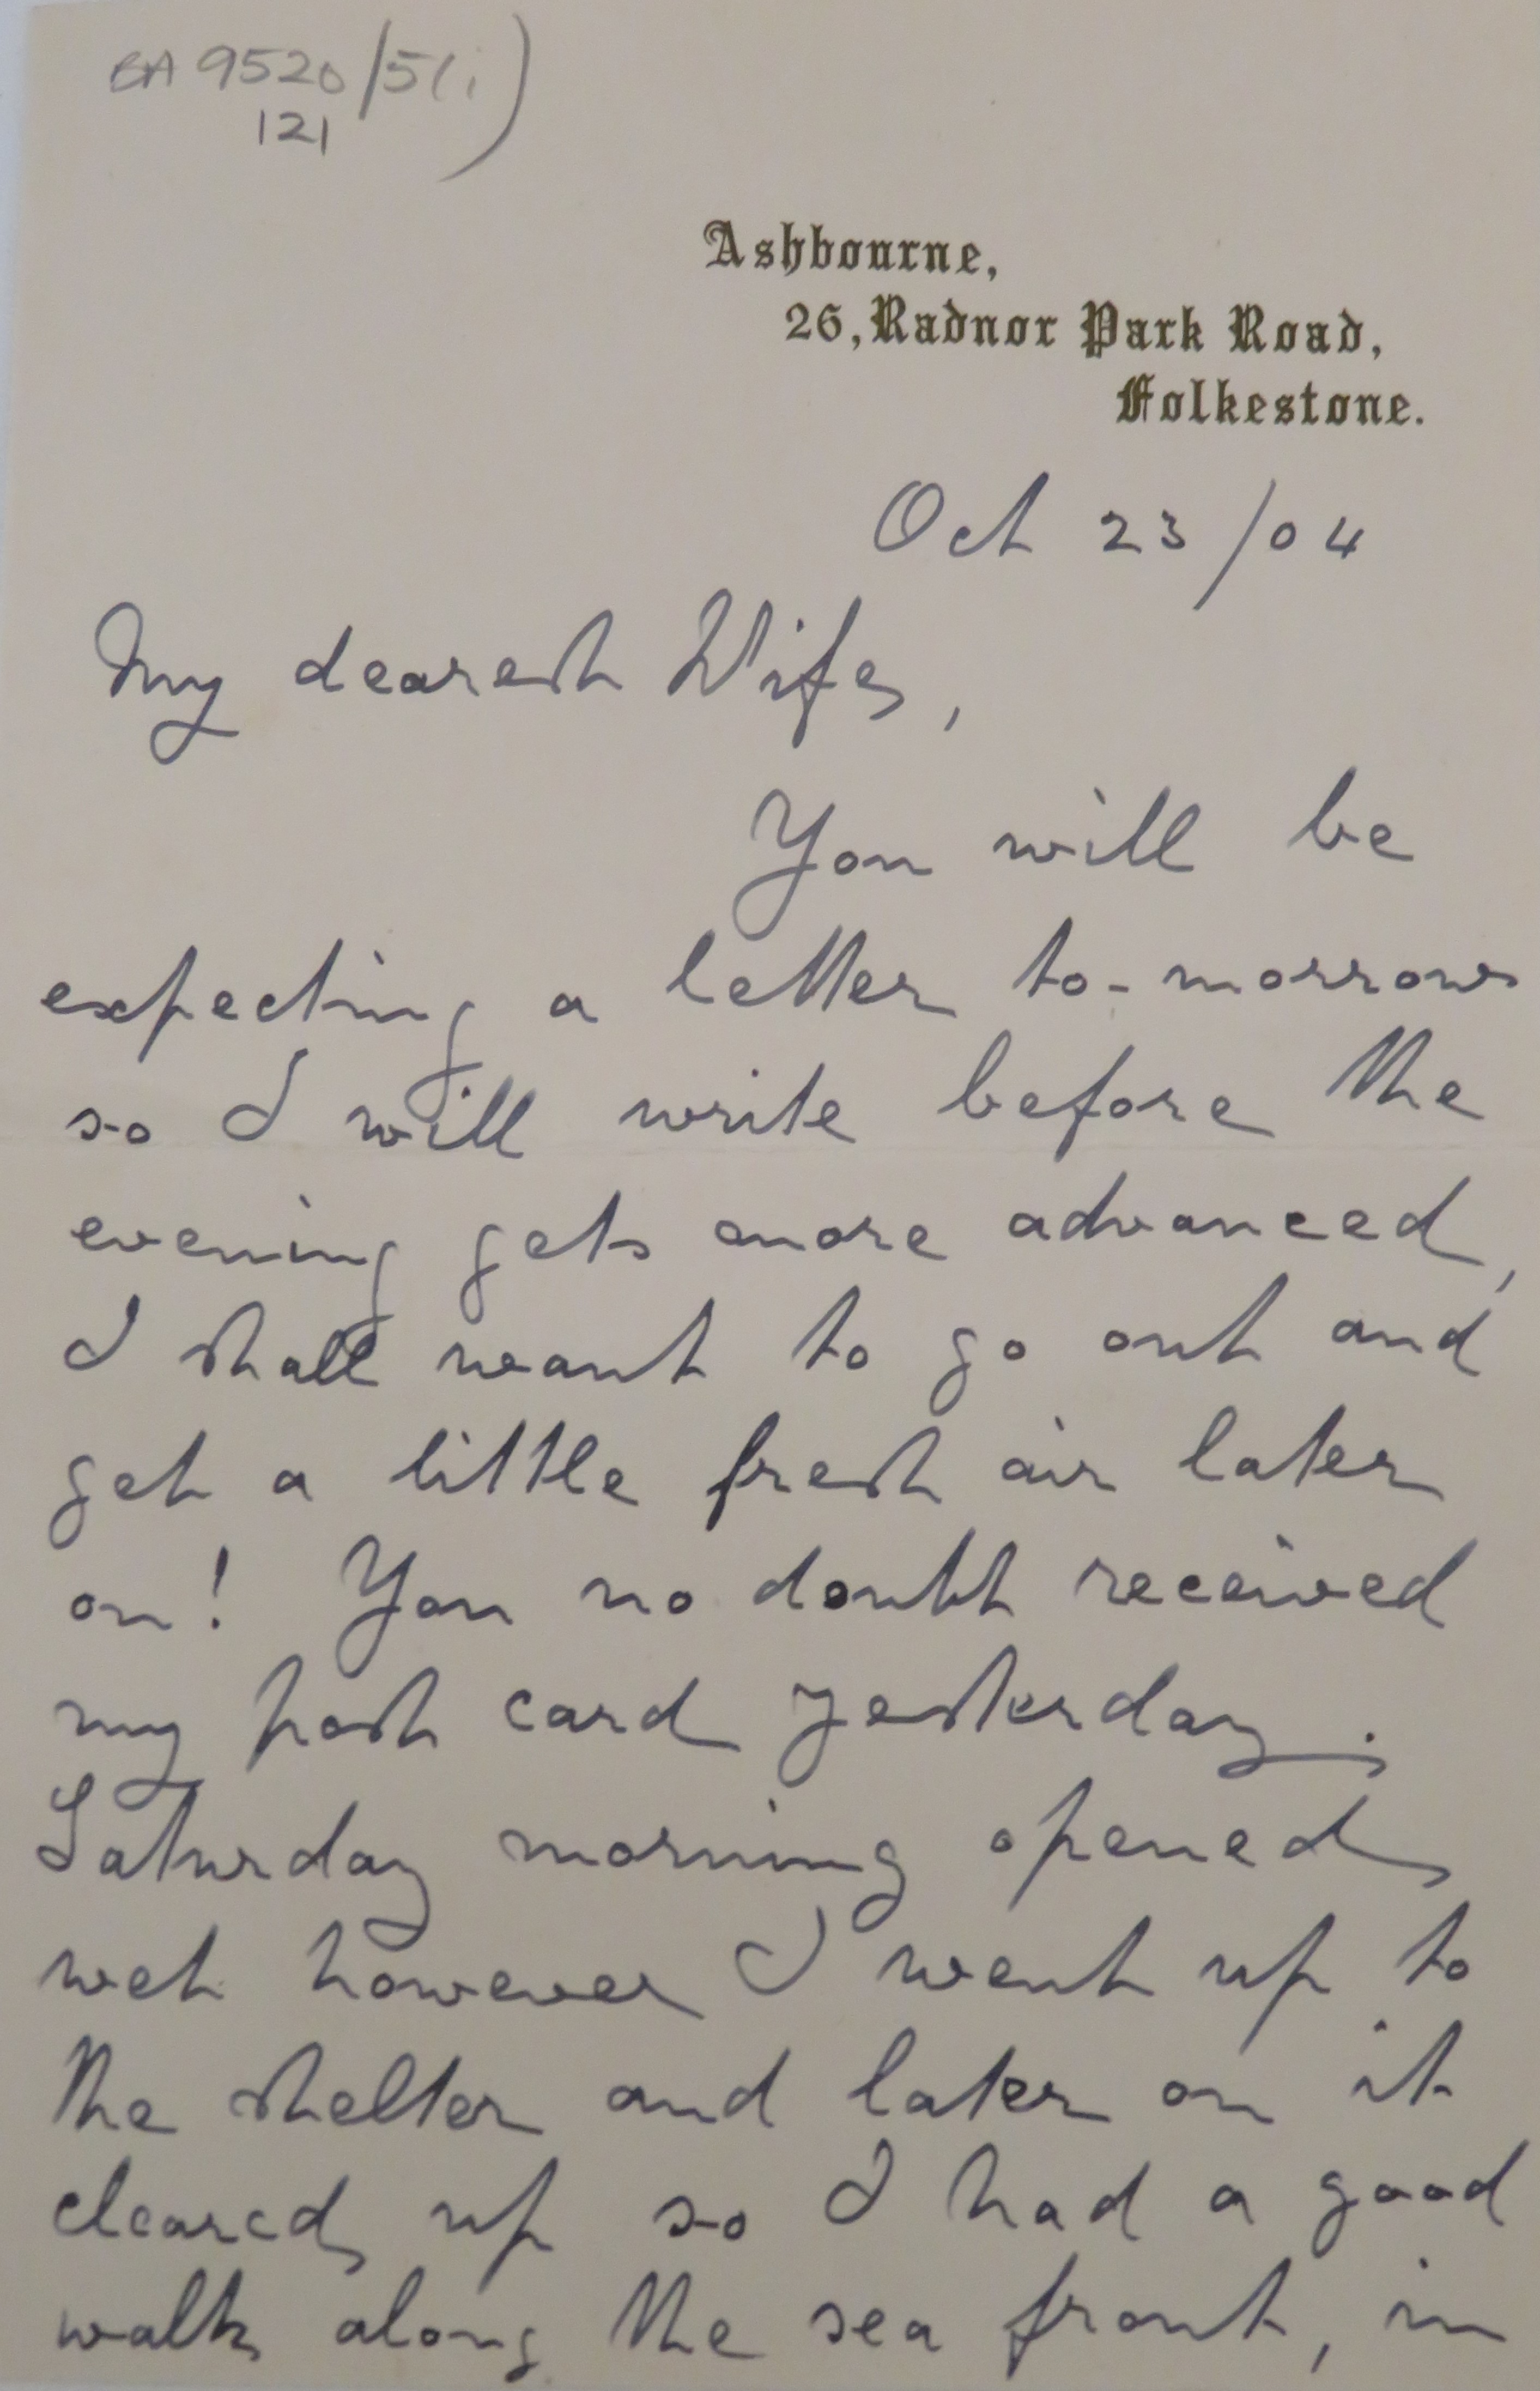 BA 9520/5(i)
121
Ashbourne,
26, Radnor Park Road,
Folkestone.
Oct 23/04
My dearest Wife,
You will be
expecting a letter to-morrow
so I will write before the
evening gets more advanced,
I shall want to go out and
get a little fresh air later
on! You no doubt received
my post card yesterday.
Saturday morning opened
wet however I went up to
the shelter and later on it
cleared up so I had a good
walk along the sea front, in